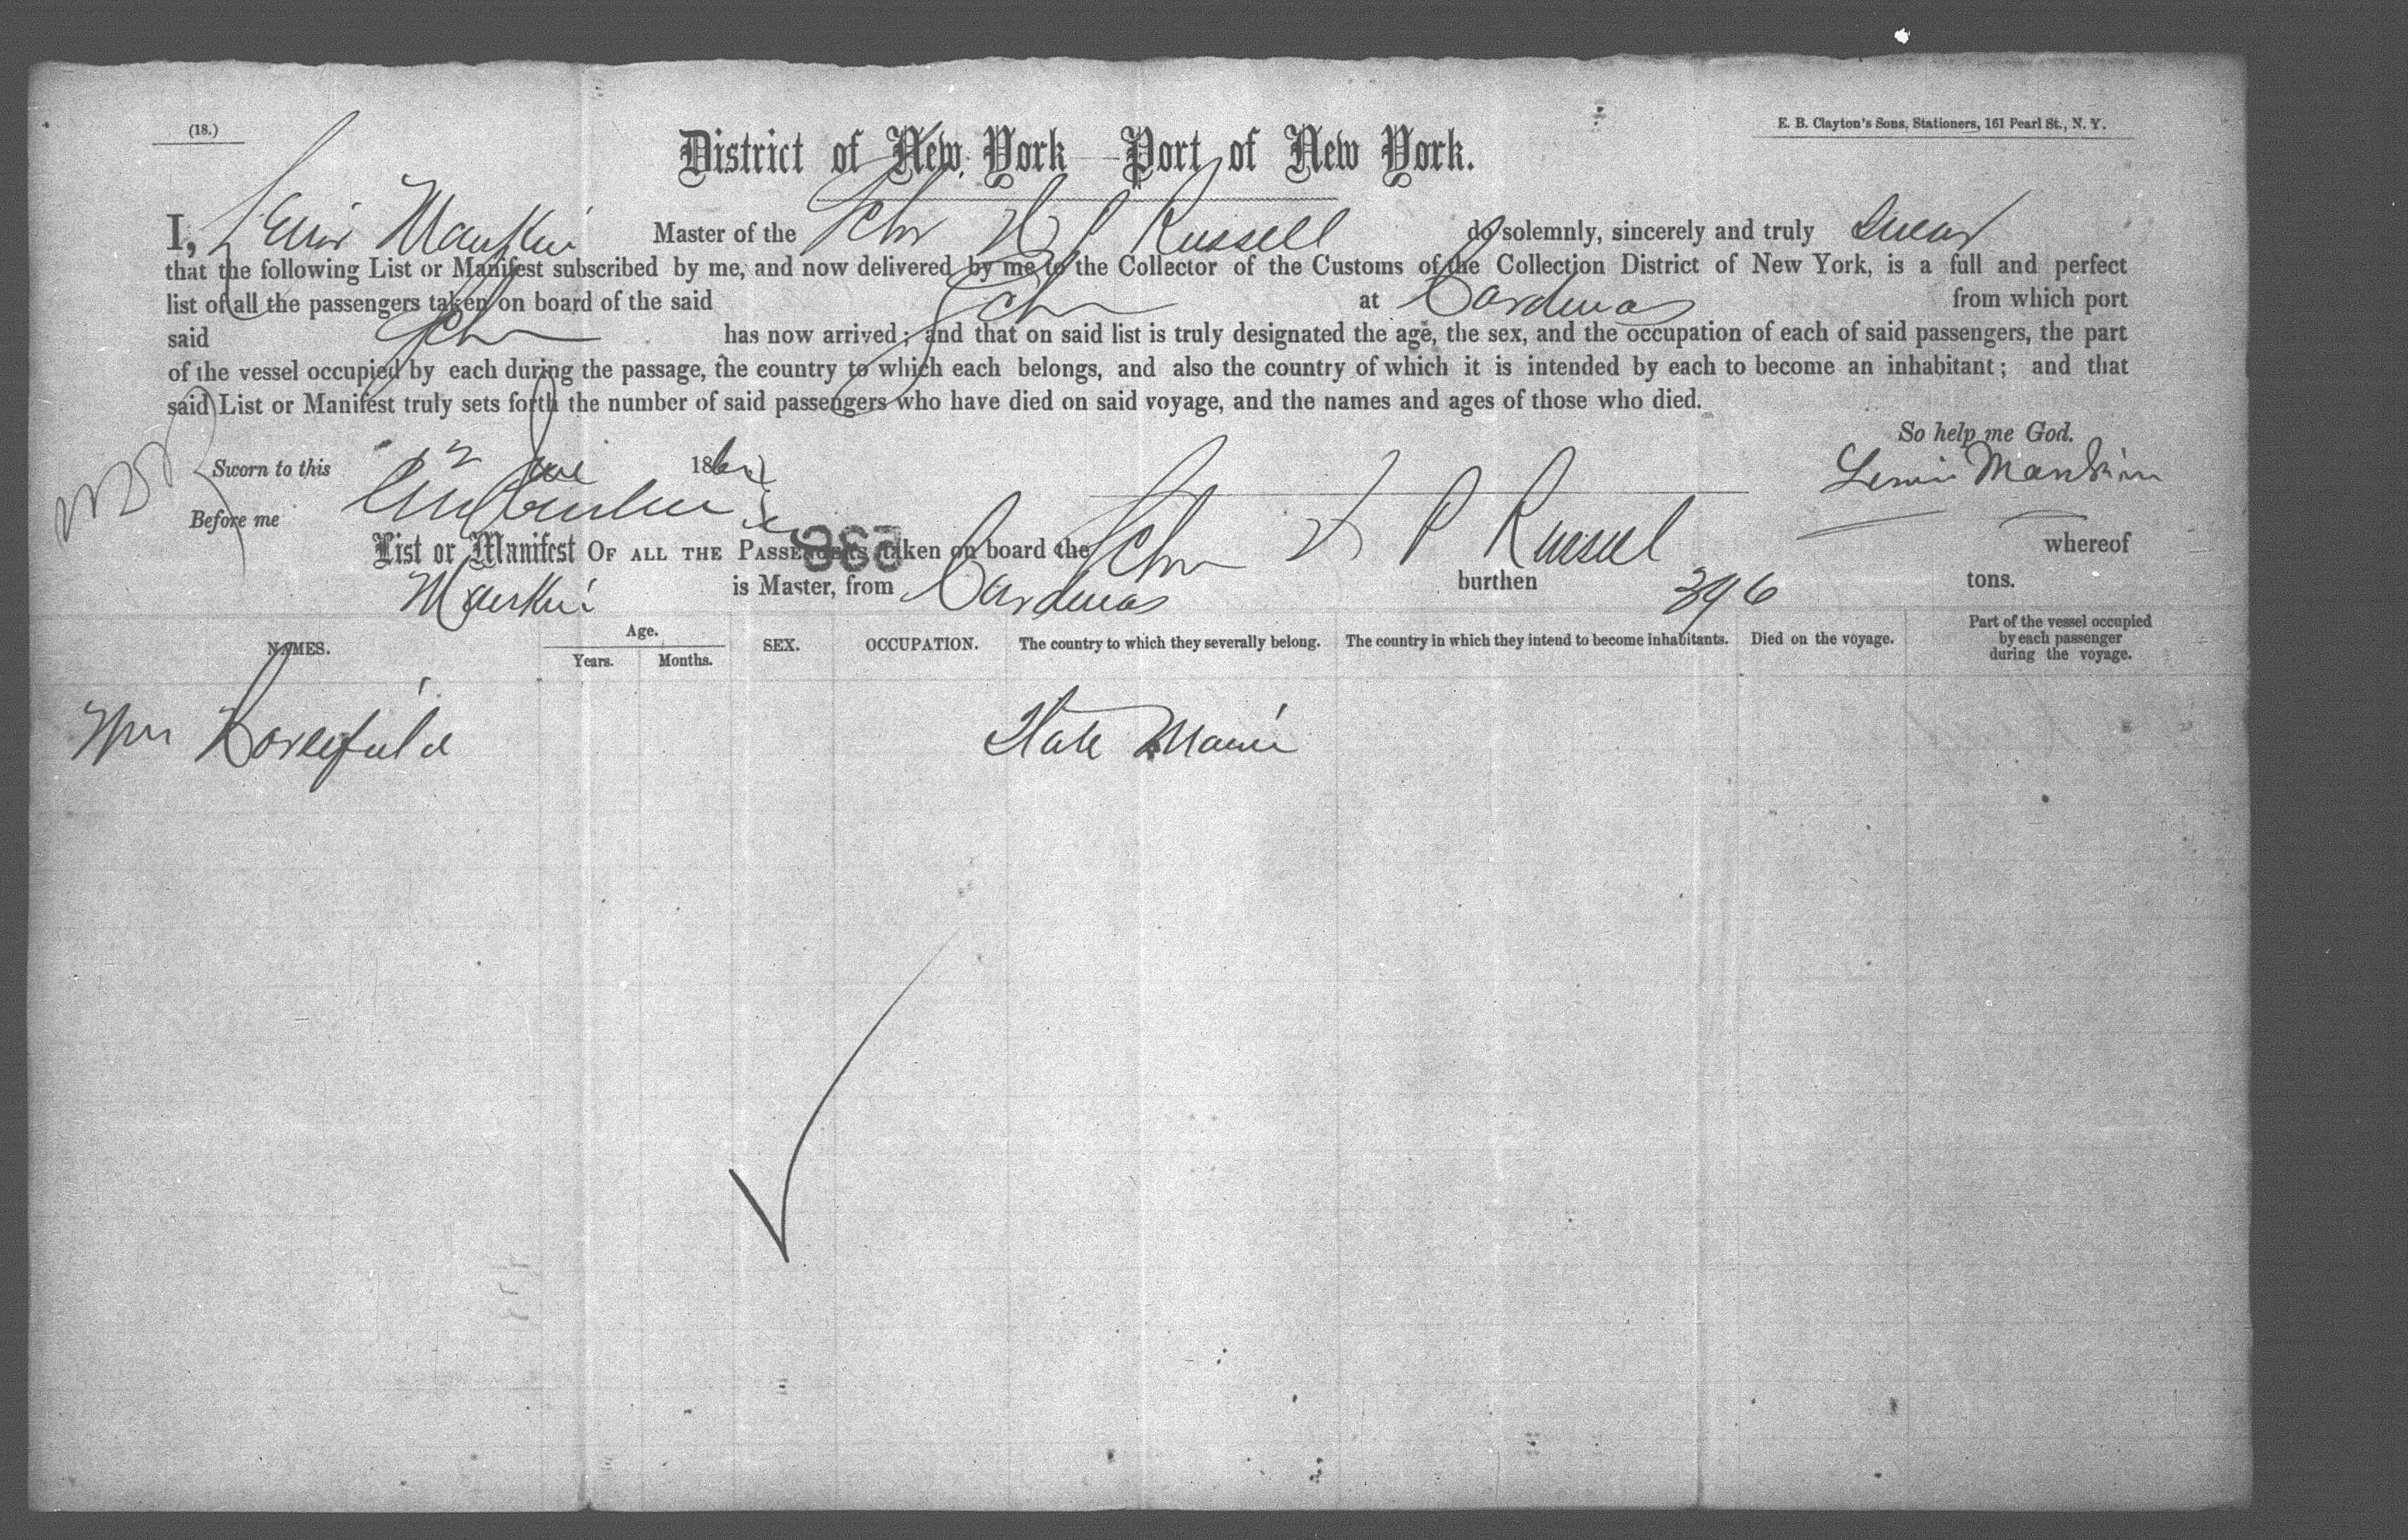 (18.)
E. B. Clayton's Sons, Stationers, 161 Pearl St., N. Y.
District of New York—Port of New York.
I, Lewis Mankin Master of the Schr H P Russell do solemnly, sincerely and truly Swear
that the following List or Manifest subscribed by me, and now delivered by me to the Collector of the Customs of the Collection District of New York, is a full and perfect
list of all the passengers taken on board of the said Sch at Cardenas from which port
said Sch has now arrived; and that on said list is truly designated the age, the sex, and the occupation of each of said passengers, the part
of the vessel occupied by each during the passage, the country to which each belongs, and also the country of which it is intended by each to become an inhabitant; and that
said List or Manifest truly sets forth the number of said passengers who have died on said voyage, and the names and ages of those who died.
So help me God.
Sworn to this 186
Lewis Mankin
Before me
536
List or Manifest OF ALL THE PASSENGERS taken on board the Schr H P Russell whereof
Mankin is Master, from Cardenas burthen 396 tons.
NAMES. Age. Years. Months. SEX. OCCUPATION. The country to which they severally belong. The country in which they intend to become inhabitants. Died on the voyage. Part of the vessel occupied by each passenger during the voyage.
Wm State Maine